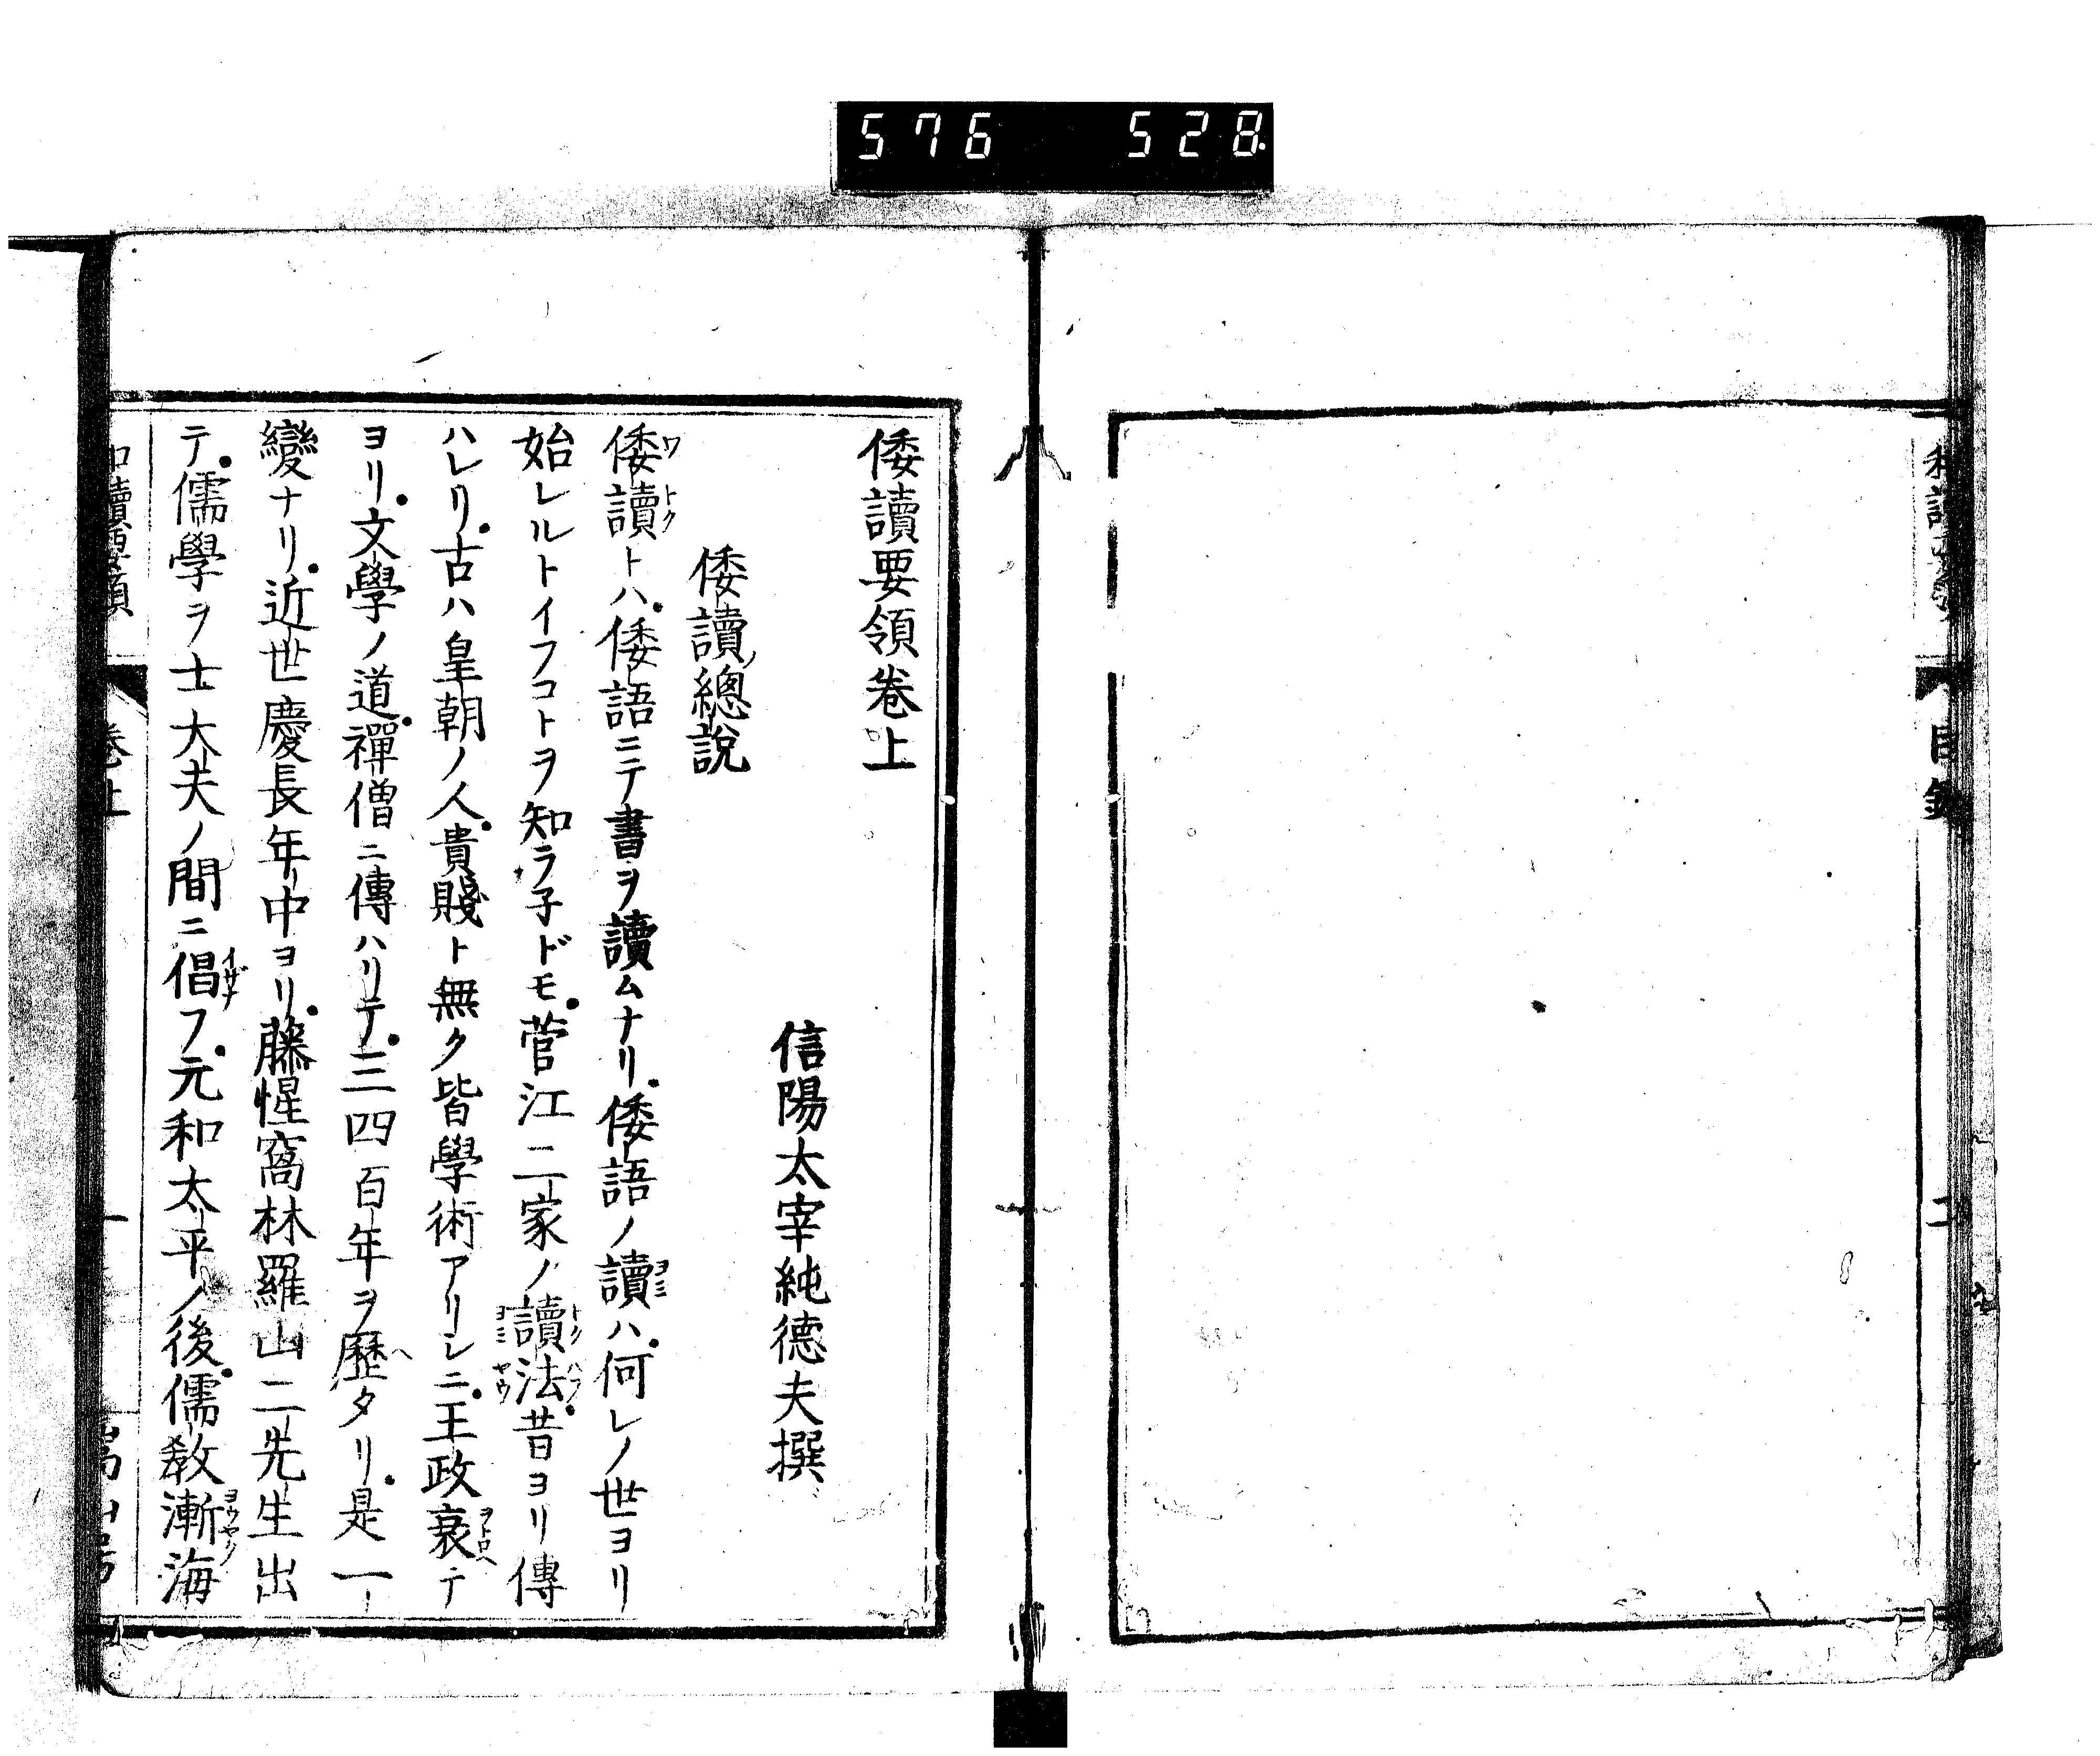 576 528
目錄
二
倭讀要領卷上
信陽太宰純德夫撰
倭讀ノ總說
倭讀トハ倭語ニテ書ヲ讀ムナリ倭語ノ讀ハ何レノ世ヨリ
始レルトイフコトヲ知ラ子ドモ菅江二家ノ讀法昔ヨリ傳
ハレリ古ハ皇朝ノ人貴賤ト無ク皆學術アリシニ王政衰テ
ヨリ文學ノ道禪僧ニ傳ハリテ三四百年ヲ歷タリ是一ノ
變ナリ近世慶長年中ヨリ藤惺窩林羅山二先生出
テ儒學ヲ士大夫ノ間ニ倡フ元和太平ノ後儒教漸海
卷上
一